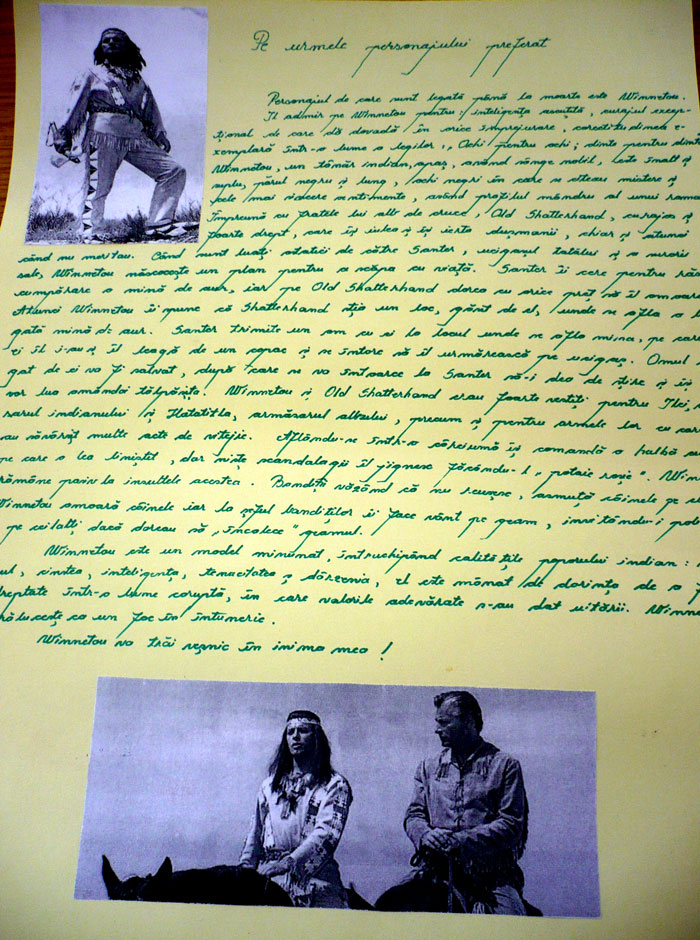 Pe urmele personajului preferat
Personajul de care sunt legată până la moarte este Winnetou.
Îl admir pe Winnetou pentru: inteligența ascuțită, curajul excep-
țional de care dă dovadă în orice împrejurare, corectitudinea e-
xemplară într-o lume a legilor „Ochi pentru ochi; dinte pentru dinte
Winnetou, un tânăr indian, apaș, având sânge nobil, este înalt și
suplu, părul negru și lung, ochi negri în care se citeau mistere și
cele mai sincere sentimente, având profilul mândru al unui roman
Împreună cu fratele lui alb de cruce, Old Shatterhand, curajos și
foarte drept, care își iubea și își ierta dușmanii, chiar și atunci
când nu meritau. Când sunt luați ostatici de către Santer, ucigașul tatălui și a surorii
sale, Winnetou născocește un plan pentru a scăpa cu viață. Santer îi cere pentru răs
cumpărare o mină de aur, iar pe Old Shatterhand dorea cu orice preț să îl omoare
Atunci Winnetou îi spune că Shatterhand știa un loc, găsit de el, unde se afla o bo
gată mină de aur. Santer trimite un om cu ei la locul unde se afla mina, pe care
ei îl iau și îl leagă de un copac și se întorc să îl urmărească pe ucigaș. Omul
gat de ei va fi salvat, după care se va întoarce la Santer să-i dea de știre și își
vor lua amândoi tălpășița. Winnetou și Old Shatterhand erau foarte vestiți pentru Ilci,
sarul indianului și Hatatitla, armăsarul albului, precum și pentru armele lor cu care
au săvârșit multe acte de vitejie. Aflându-se într-o cârciumă își comandă o halbă
pe care o bea liniștit, dar niște scandalagii îl jignesc făcându-l „potaie roșie". Winne
rămâne pasiv la insultele acestea. Bandiții văzând că nu reușesc, asmuță câinele pe
Winnetou omoară câinele iar la șeful bandiților îi face vânt pe geam, invitându-i
pe ceilalți dacă doreau să „încalece" geamul.
Winnetou este un model minunat, întruchipând calitățile poporului indian:
ul, cinstea, inteligența, tenacitatea și dârzenia, el este mânat de dorința de a f
dreptate într-o lume coruptă, în care valorile adevărate s-au dat uitării. Winne
strălucește ca un foc în întuneric.
Winnetou va trăi veșnic în inima mea!